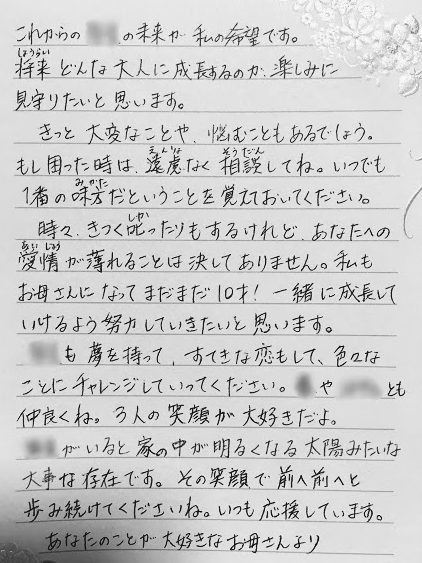 これからの の未来が私の希望です。
将来どんな大人に成長するのか、楽しみに
見守りたいと思います。
きっと大変なことや、悩むこともあるでしょう。
もし困った時は、遠慮なく相談してね。いつでも
1番の味方だということを覚えておいてください。
時々、きつく叱ったりもするけれど、あなたへの
愛情が薄れることは決してありません。私も
お母さんになってまだまだ10才！一緒に成長して
いけるよう努力していきたいと思います。
も夢を持って、すてきな恋もして、色々な
ことにチャレンジしていってください。 や とも
仲良くね。3人の笑顔が大好きだよ。
がいると家の中が明るくなる太陽みたいな
大事な存在です。その笑顔で前へ前へと
歩み続けてくださいね。いつも応援しています。
あなたのことが大好きなお母さんより